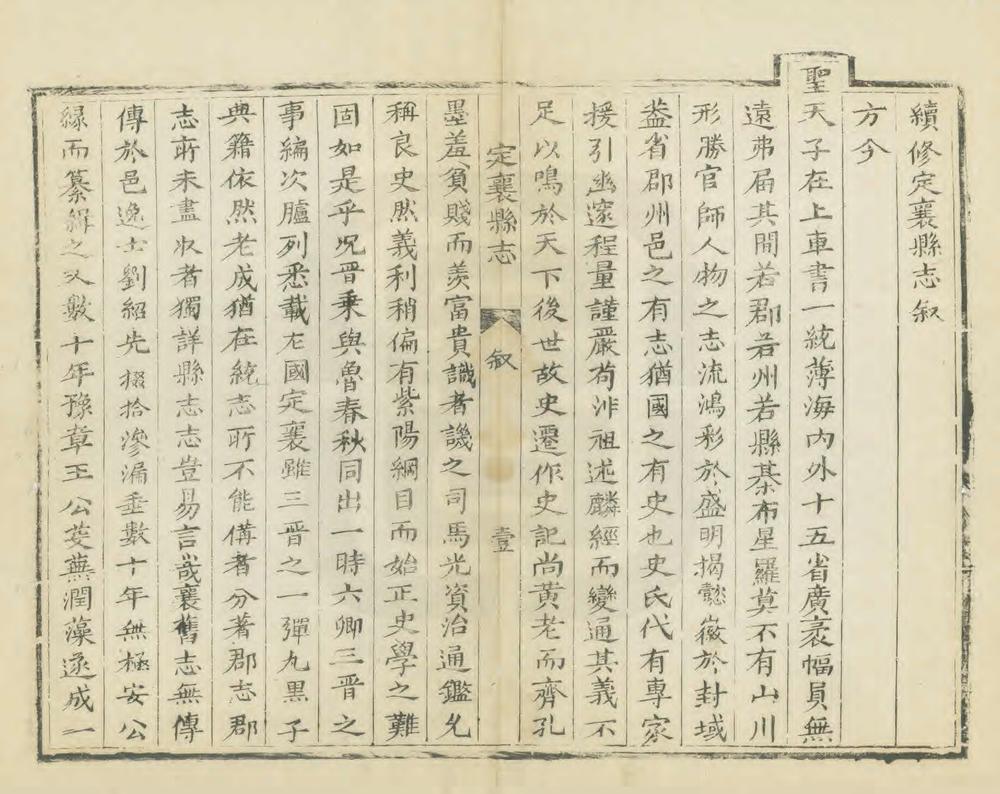 續修定襄縣志叙
方今
聖天子在上車書一統薄海内外十五省廣袤幅員無
遠弗屆其間若郡若州若縣棊布星羅莫不有山川
形勝官師人物之志流鴻彩於盛明揭懿徽於封域
葢省郡州邑之有志猶國之有史也史氏代有專家
援引幽邃程量謹嚴苟非祖述麟經而變通其義不
足以鳴於天下後世故史遷作史記尚黄老而齊孔
定襄縣志
叙
壹
墨羞貧賤而羡富貴識者譏之司馬光資治通鑑允
稱良史然義利稍偏有紫陽綱目而始正史學之難
固如是乎况晋乗與魯春秋同出一時六卿三晋之
事編次臚列悉載左國定襄雖三晋之一彈丸黒子
典籍依然老成猶在統志所不能俻者分著郡志郡
志所未盡収者獨詳縣志志豈易言哉襄舊志無傳
傳於邑逸士劉紹先掇拾滲漏垂數十年無極安公
緣而纂緝之又數十年豫章王公芟蕪潤藻遂成一